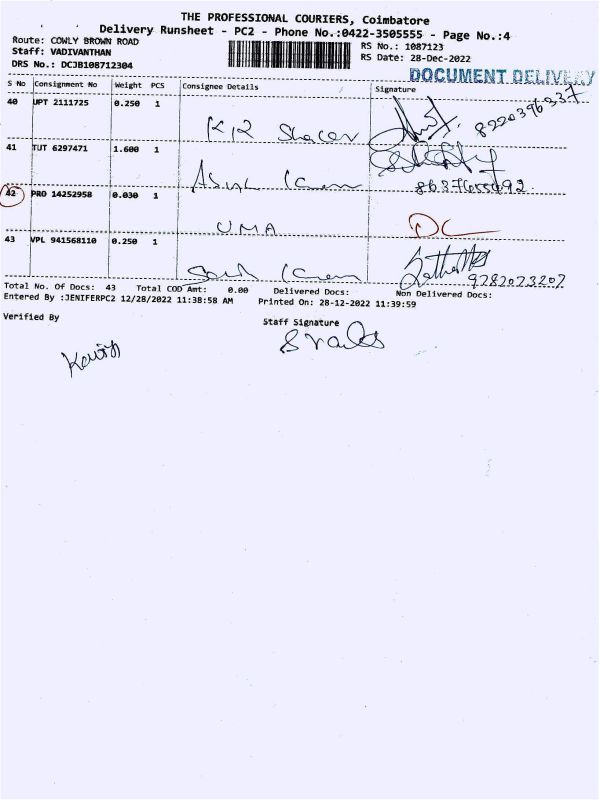 THE PROFESSIONAL COURIERS, Coimbatore
Delivery Runsheet - PC2 - Phone No.:0422-3505555 - Page No.:4
Route: COWLY BROWN ROAD
Staff: VADIVANTHAN
DRS No.: DCJB108712304
RS No.: 1087123
RS Date: 28-Dec-2022
DOCUMENT DELIVERY
S No Consignment No Weight PCS Consignee Details Signature
40 UPT 2111725 0.250 1
8220396337
41 TUT 6297471 1.600 1
42 PRO 14252958 0.030 1
UMA
DL
43 VPL 941568110 0.250 1
9282073207
Total No. Of Docs: 43 Total COD Amt: 0.00 Delivered Docs: Non Delivered Docs:
Entered By :JENIFERPC2 12/28/2022 11:38:58 AM Printed On: 28-12-2022 11:39:59
Verified By
Staff Signature